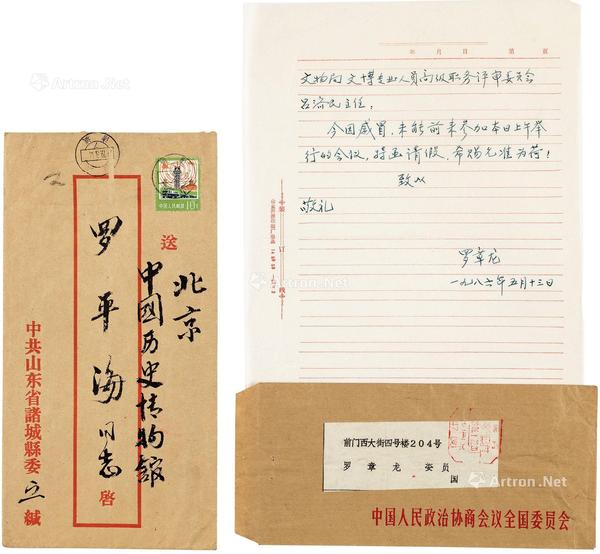 中国人民邮政 10分
送
北京
中國历史博物館
罗平海同志
啓
中共山东省諸城縣委
缄
年 月 日 第 页
文物局文博专业人员高级职务评审委员会
吕济民主任：
今因感冒，未能前来参加本日上午举
行的会议，特函请假，希赐允准为荷！
致以
敬礼
罗章龙
一九八六年五月十三日
装 订 线
前门西大街四号楼204号
罗章龙 委员
国
中国人民政治协商会议全国委员会
Artron.Net
Artron.Net
Artron.Net